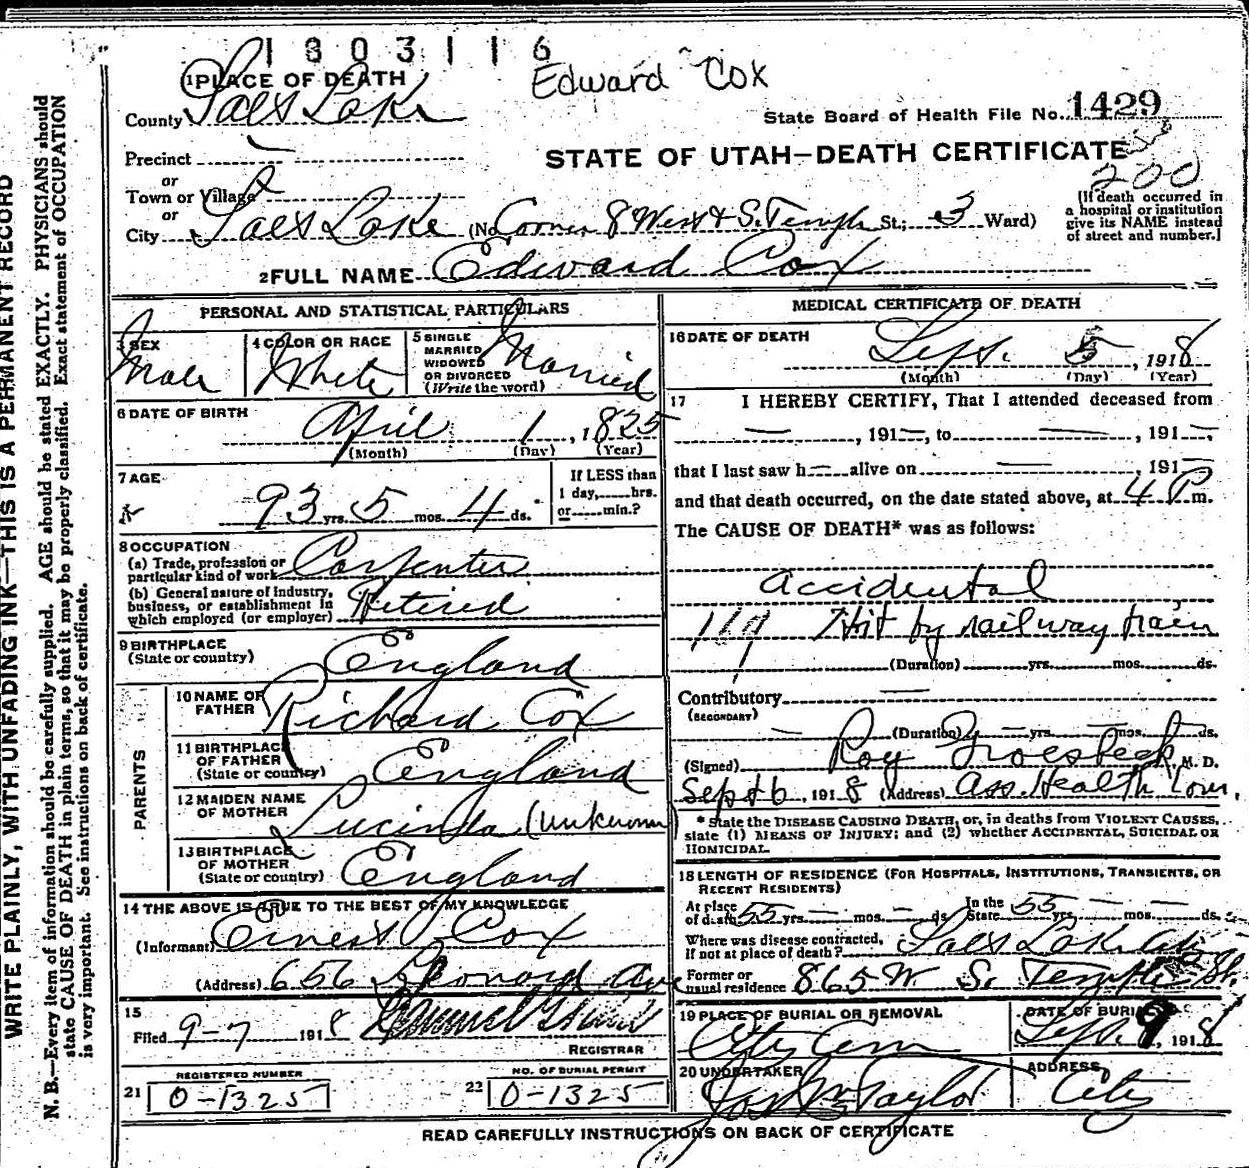 1803116
Edward Cox
1 PLACE OF DEATH
County Salt Lake
State Board of Health File No. 1429
Precinct
STATE OF UTAH—DEATH CERTIFICATE
200
or
Town or Village
or
City Salt Lake (No. Corner 8 West & S. Temple St.; 3 Ward)
[If death occurred in
a hospital or institution
give its NAME instead
of street and number.]
2 FULL NAME Edward Cox
PERSONAL AND STATISTICAL PARTICULARS
3 SEX
Male
4 COLOR OR RACE
White
5 SINGLE
MARRIED
WIDOWED
OR DIVORCED
(Write the word)
Married
6 DATE OF BIRTH
April 1, 1825
(Month) (Day) (Year)
7 AGE
93 yrs. 5 mos. 4 ds.
If LESS than
1 day, hrs.
or min.?
8 OCCUPATION
(a) Trade, profession or
particular kind of work Carpenter
(b) General nature of Industry,
business, or establishment in
which employed (or employer) Retired
9 BIRTHPLACE
(State or country) England
PARENTS
10 NAME OF
FATHER Richard Cox
11 BIRTHPLACE
OF FATHER
(State or country) England
12 MAIDEN NAME
OF MOTHER Lucinda (unknown)
13 BIRTHPLACE
OF MOTHER
(State or country) England
14 THE ABOVE IS TRUE TO THE BEST OF MY KNOWLEDGE
(Informant) Ernest Cox
(Address) 656 Leonard Ave
15
Filed 9-7 1918
REGISTRAR
REGISTERED NUMBER
21 0-1325
NO. OF BURIAL PERMIT
22 0-1325
MEDICAL CERTIFICATE OF DEATH
16 DATE OF DEATH
Sept. 5, 1918
(Month) (Day) (Year)
17 I HEREBY CERTIFY, That I attended deceased from
— , 191—, to — , 191—,
that I last saw h— alive on — , 191—
and that death occurred, on the date stated above, at 4 P m.
The CAUSE OF DEATH* was as follows:
accidental
Hit by railway train
(Duration) yrs. mos. ds.
Contributory —
(SECONDARY)
— (Duration) — yrs. — mos. ds.
(Signed) Roy Groesbeck, M. D.
Sept 6, 1918 (Address) Ass. Health Com.
* State the DISEASE CAUSING DEATH, or, in deaths from VIOLENT CAUSES,
state (1) MEANS OF INJURY; and (2) whether ACCIDENTAL, SUICIDAL OR
HOMICIDAL.
18 LENGTH OF RESIDENCE (FOR HOSPITALS, INSTITUTIONS, TRANSIENTS, OR
RECENT RESIDENTS)
At place
of death 55 yrs. — mos. — ds. In the
State 55 yrs. — mos. — ds.
Where was disease contracted,
If not at place of death? Salt Lake City
Former or
usual residence 865 W. S. Temple St.
19 PLACE OF BURIAL OR REMOVAL
City Cem
DATE OF BURIAL
Sept. 9, 1918
20 UNDERTAKER
Jos Wm Taylor
ADDRESS
City
READ CAREFULLY INSTRUCTIONS ON BACK OF CERTIFICATE
WRITE PLAINLY, WITH UNFADING INK—THIS IS A PERMANENT RECORD
N. B.—Every item of information should be carefully supplied. AGE should be stated EXACTLY. PHYSICIANS should
state CAUSE OF DEATH in plain terms, so that it may be properly classified. Exact statement of OCCUPATION
is very important. See instructions on back of certificate.